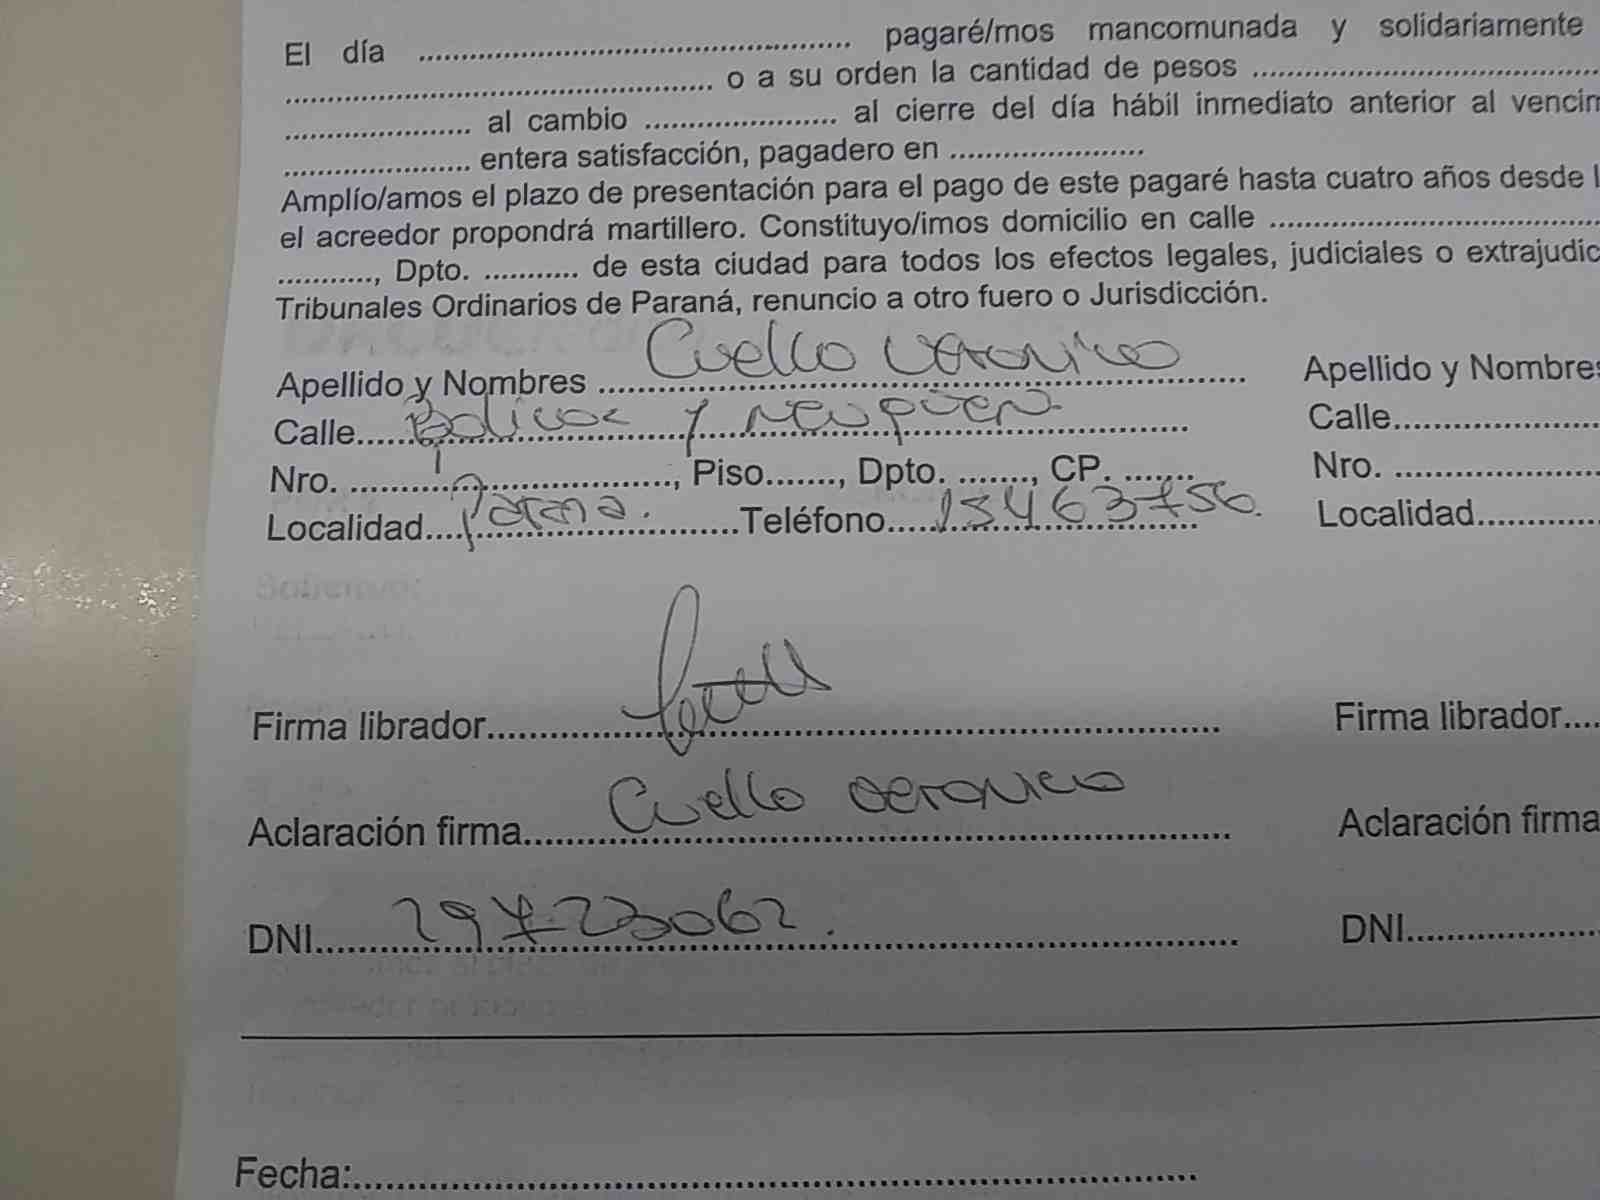 El día ............................................ pagaré/mos mancomunada y solidariamente
............................................ o a su orden la cantidad de pesos ....................................
...................... al cambio ...................... al cierre del día hábil inmediato anterior al vencim
...................... entera satisfacción, pagadero en ......................
Amplío/amos el plazo de presentación para el pago de este pagaré hasta cuatro años desde l
el acreedor propondrá martillero. Constituyo/imos domicilio en calle ....................................
..........., Dpto. ........... de esta ciudad para todos los efectos legales, judiciales o extrajudic
Tribunales Ordinarios de Paraná, renuncio a otro fuero o Jurisdicción.
Apellido y Nombres Cuello Veronica Apellido y Nombres
Calle Bolivar y Neuquen Calle
Nro. ...................., Piso......., Dpto. ......., CP. ....... Nro. ....................
Localidad Parana. Teléfono 153463756. Localidad
Firma librador Firma librador
Aclaración firma Cuello Veronica Aclaración firma
DNI 29723062. DNI
Fecha: